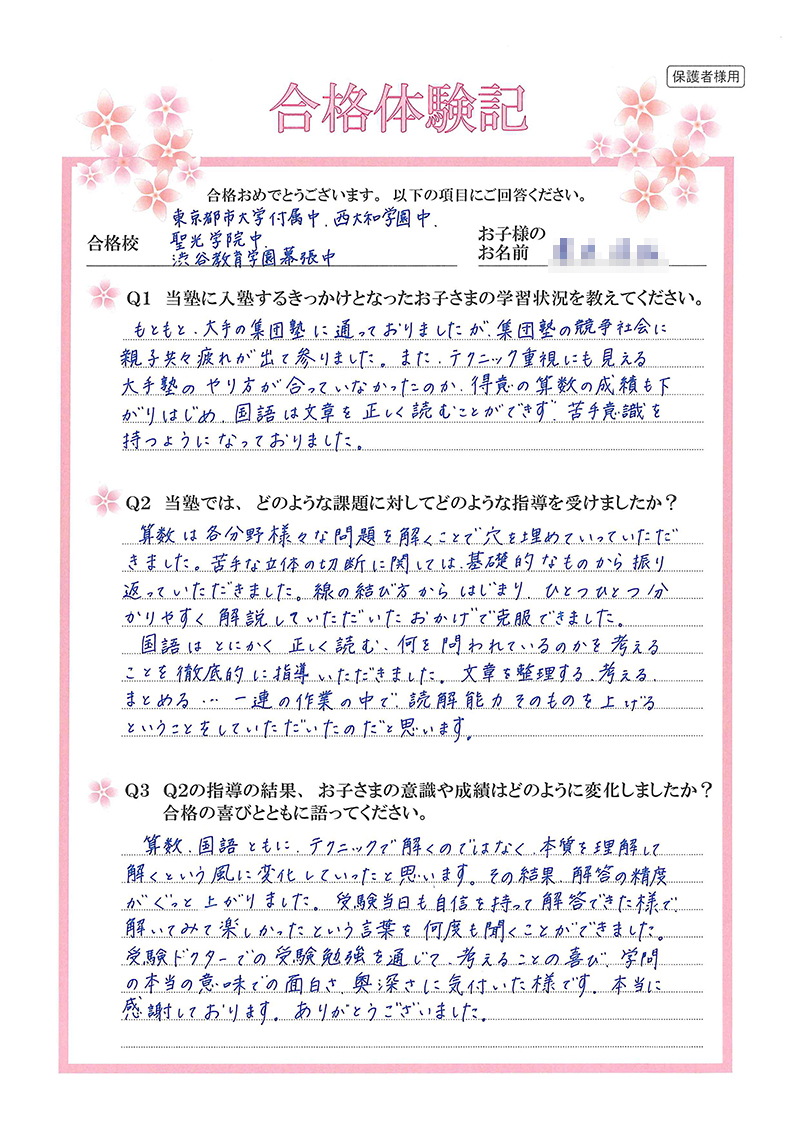 保護者様用
合格体験記
合格おめでとうございます。以下の項目にご回答ください。
合格校
東京都市大学付属中、西大和学園中、
聖光学院中、
渋谷教育学園幕張中
お子様の
お名前
Q1 当塾に入塾するきっかけとなったお子さまの学習状況を教えてください。
もともと、大手の集団塾に通っておりましたが、集団塾の競争社会に
親子共々疲れが出て参りました。また、テクニック重視にも見える
大手塾のやり方が合っていなかったのか、得意の算数の成績も下
がりはじめ、国語は文章を正しく読むことができず、苦手意識を
持つようになっておりました。
Q2 当塾では、どのような課題に対してどのような指導を受けましたか？
算数は各分野様々な問題を解くことで穴を埋めていっていただ
きました。苦手な立体の切断に関しては、基礎的なものから振り
返っていただきました。線の結び方からはじまり、ひとつひとつ分
かりやすく解説していただいたおかげで克服できました。
国語はとにかく正しく読む、何を問われているのかを考える
ことを徹底的に指導いただきました。文章を整理する、考える、
まとめる…一連の作業の中で、読解能力そのものを上げる
ということをしていただいたのだと思います。
Q3 Q2の指導の結果、お子さまの意識や成績はどのように変化しましたか？
合格の喜びとともに語ってください。
算数、国語ともに、テクニックで解くのではなく、本質を理解して
解くという風に変化していったと思います。その結果、解答の精度
がぐっと上がりました。受験当日も自信を持って解答できた様で、
解いてみて楽しかったという言葉を何度も聞くことができました。
受験ドクターでの受験勉強を通じて、考えることの喜び、学問
の本当の意味での面白さ、奥深さに気付いた様です。本当に
感謝しております。ありがとうございました。